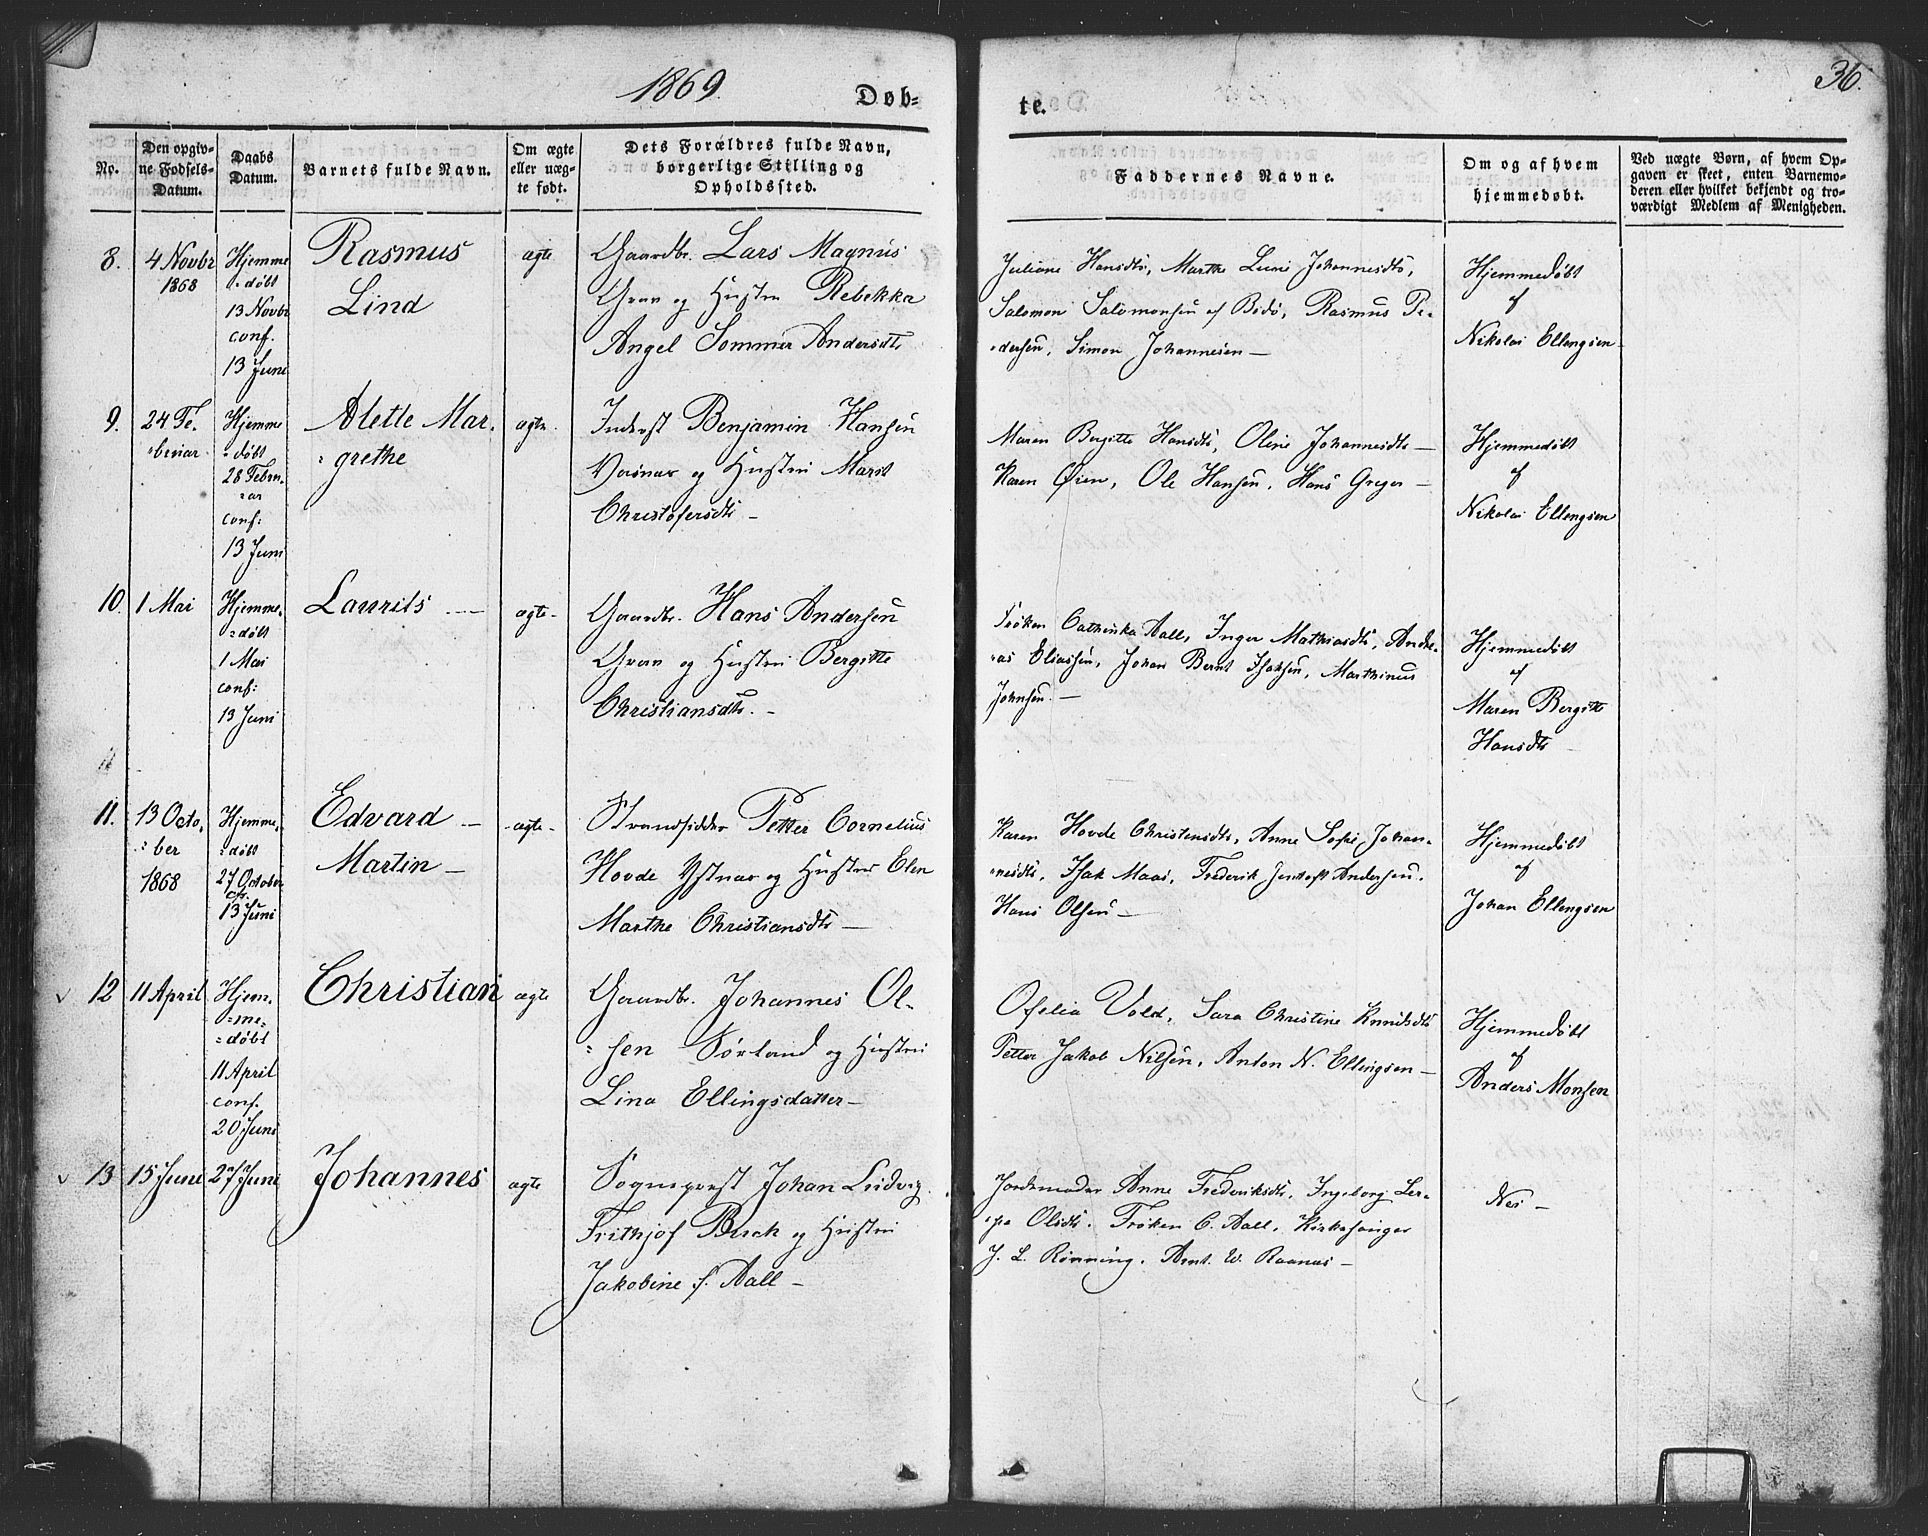 1869
Døb-
te.
36.
No.
Den opgiv-
ne Fødsels-
Datum.
Daabs
Datum.
Barnets fulde Navn.
Om ægte
eller uæg-
te født.
Dets Forældres fulde Navn,
borgerlige Stilling og
Opholdssted.
Faddernes Navne.
Om og af hvem
hjemmedøbt.
Ved uægte Børn, af hvem Op-
gaven er skeet, enten Barnemo-
deren eller hvilket bekjendt og tro-
værdigt Medlem af Menigheden.
8.
4 Novbr
1868
Hjemme
=døbt
13 Novbr
conf.
13 Juni
Rasmus
Lind
ægte
Gaardbr. Lars Magnus
og Hustru Rebekka
Angel Sommer Andersdtr
Juliane Hansdtr, Marthe Johannesdtr,
Salomon Salomonsen af Bodø, Rasmus Pe-
=dersen, Simon Johannesen —
Hjemmedøbt
af
Nikolai Ellengsen
9.
24 Fe-
=bruar
Hjemme
=døbt
28 Febru-
=ar
conf:
13 Juni
Alette Mar-
=grethe
ægte
Inderst Benjamin Hansen
og Hustru Marit
Christofersdtr —
Maren Bergitte Hansdtr, Oline Johannesdtr —
Karen Øien, Ole Hansen, Hans Greger —
Hjemmedøbt
af
Nikolai Ellengsen
10.
1 Mai
Hjemme-
=døbt
1 Mai
conf:
13 Juni
Laurits —
ægte-
Gaardbr. Hans Andersen
og Hustru Bergitte
Christiansdtr. —
Frøken Cathinka Aall, Inger Mathiasdtr, Andre-
=as Eliassen, Johan Bernt Isaksen, Marthinus
Johnsen. —
Hjemmedøbt
af
Maren Bergitte
Hansdtr
11.
13 Octo-
=ber
1868
Hjemme-
=døbt
27 October
cf.
13 Juni
Edvard —
Martin —
-ægte-
Strandsidder Petter Cornelius
Hovde Ystnæs og Hustru Elen
Marthe Christiansdtr —
Karen Hovde Christensdtr, Anne Sofie Johan-
=nesdtr, Isak Maas, Frederik Jentoft Andersen,
Hans Olsen —
Hjemmedøbt
af
Johan Ellengsen
12
11 April
Hjem-
=me-
=døbt
11 April
conf.
20 Juni
Christian
ægte
Gaardbr. Johannes Ol-
=sen Sørland og Hustru
Lina Ellingsdatter —
Ofelia Vold, Sara Christine Knudsdtr
Petter Jakob Nilsen, Anton N. Ellingsen —
Hjemmedøbt
af
Anders Monsen
13
15 Juni
27 Juni
Johannes
ægte
Sogneprest Johan Ludvig
Frithjof Buck og Hustru
Jakobine f. Aall —
Jordemoder Anne Frederiksdtr, Ingeborg
Olsdtr. Frøken C. Aall, Kirkesanger
J. L. Rønning. Arnt. W. Raanæs —
Nei —